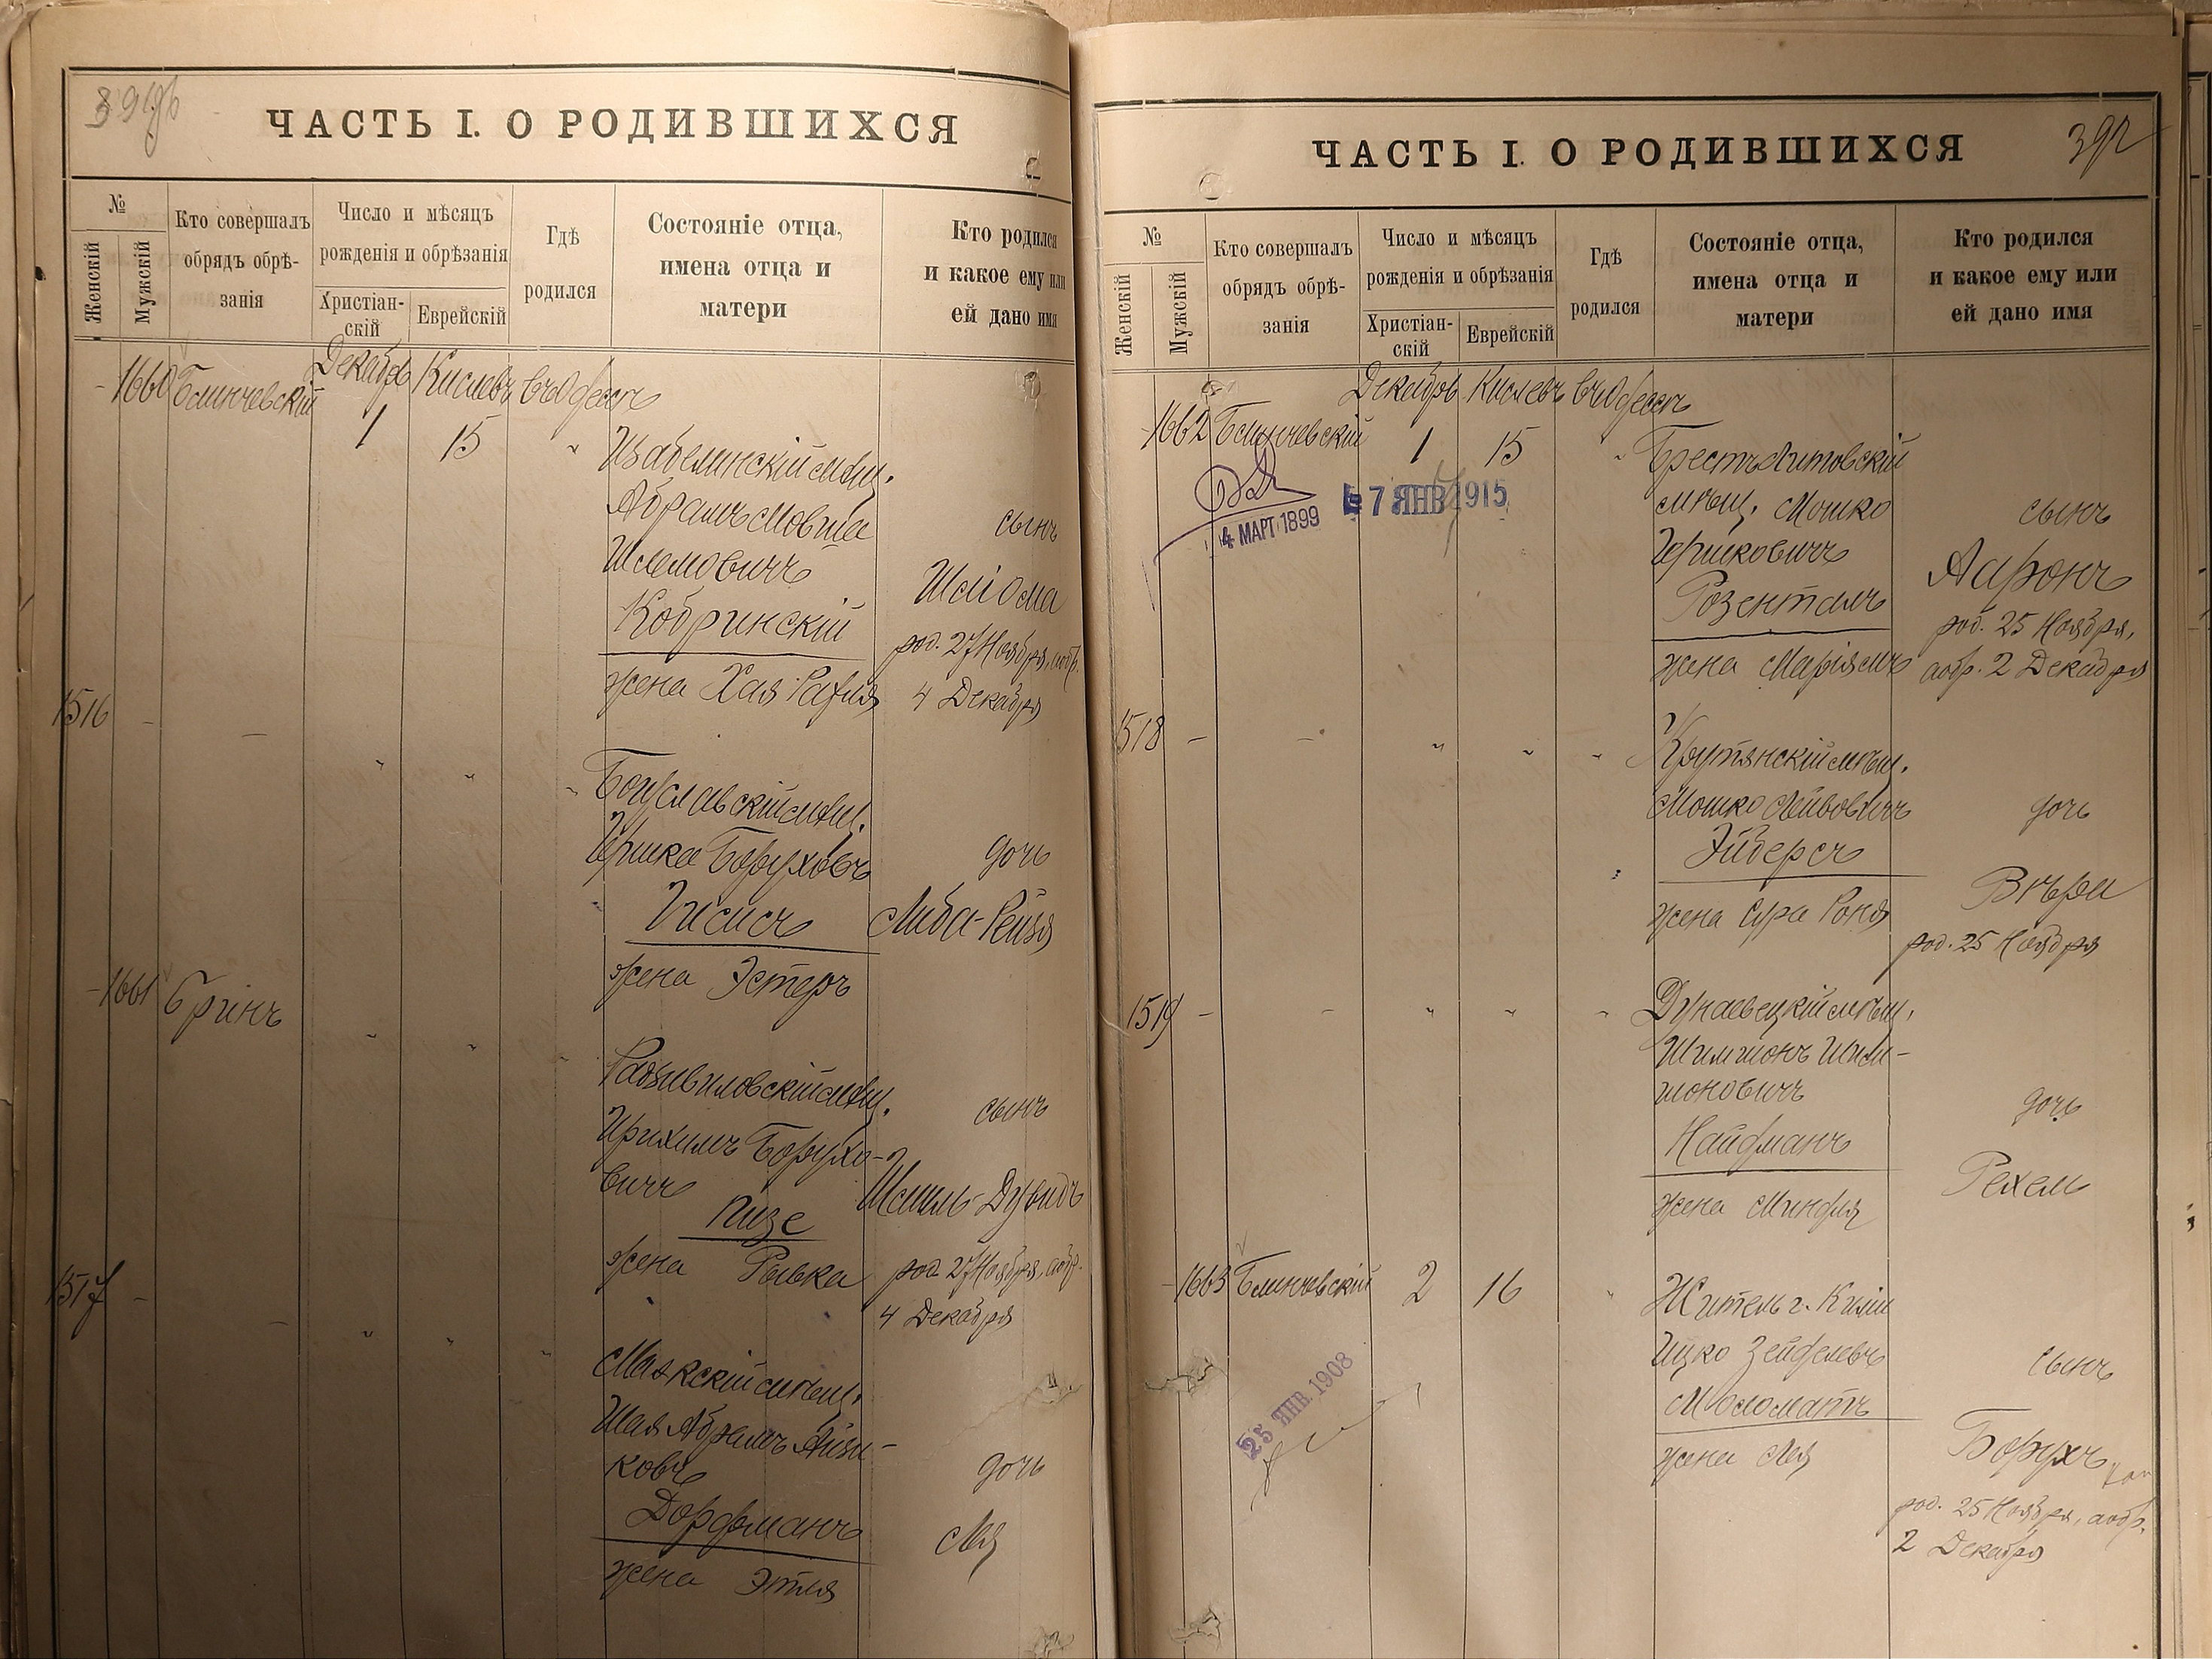 ЧАСТЬ I. О РОДИВШИХСЯ
№
Женскій
Мужскій
Кто совершалъ
обрядъ обрѣ-
занія
Число и мѣсяцъ
рожденія и обрѣзанія
Христіан-
скій
Еврейскій
Гдѣ
родился
Состояніе отца,
имена отца и
матери
Кто родился
и какое ему или
ей дано имя
1660 Блинчевскій
Декабрь Кислевъ въ Одессѣ
1 15
Абрамъ Мовша
Шлемовичъ
Кобринскій
жена Хая Рахля
сынъ
род. 27 Ноября, аобр.
4 Декабря
1516
Богуславскій мѣщ.
Гершко Боруховъ
жена Эстеръ
дочь
Либа-Рейзя
1661 Гринъ
Радзивиловскій мѣщ.
Ирихимъ Борухо-
вичъ
Пизе
жена Рывка
сынъ
Шмиль-Дувидъ
род. 27 Ноября, аобр.
4 Декабря
1517
Маякскій мѣщ.
Шая Абрамъ Айзи-
ковъ
Дорфманъ
жена Этля
дочь
Лея
ЧАСТЬ I. О РОДИВШИХСЯ
392
№
Женскій
Мужскій
Кто совершалъ
обрядъ обрѣ-
занія
Число и мѣсяцъ
рожденія и обрѣзанія
Христіан-
скій
Еврейскій
Гдѣ
родился
Состояніе отца,
имена отца и
матери
Кто родился
и какое ему или
ей дано имя
1662 Блинчевскій
Декабрь Кислевъ въ Одессѣ
1 15
4 МАРТ 1899
7 ЯНВ 1915
Брестъ Литовскій
мѣщ. Мошко
Гершковичъ
Розенталъ
жена Маріямъ
сынъ
Ааронъ
род. 25 Ноября,
аобр. 2 Декабря
1518
Крутянскій мѣщ.
Мошко Лейбовичъ
Эйдерсъ
жена Сура Роня
дочь
Вѣра
род. 25 Ноября
1519
Дунаевецкій мѣщ.
Шимшонъ Шим-
шоновичъ
Найфманъ
жена Миндля
дочь
Рехель
1663 Блинчевскій
2 16
25 ЯНВ. 1908
Житель г. Киліи
Ицко Зейделевъ
Моломатъ
жена Лея
сынъ
Борухъ
род. 25 Ноября, аобр.
2 Декабря